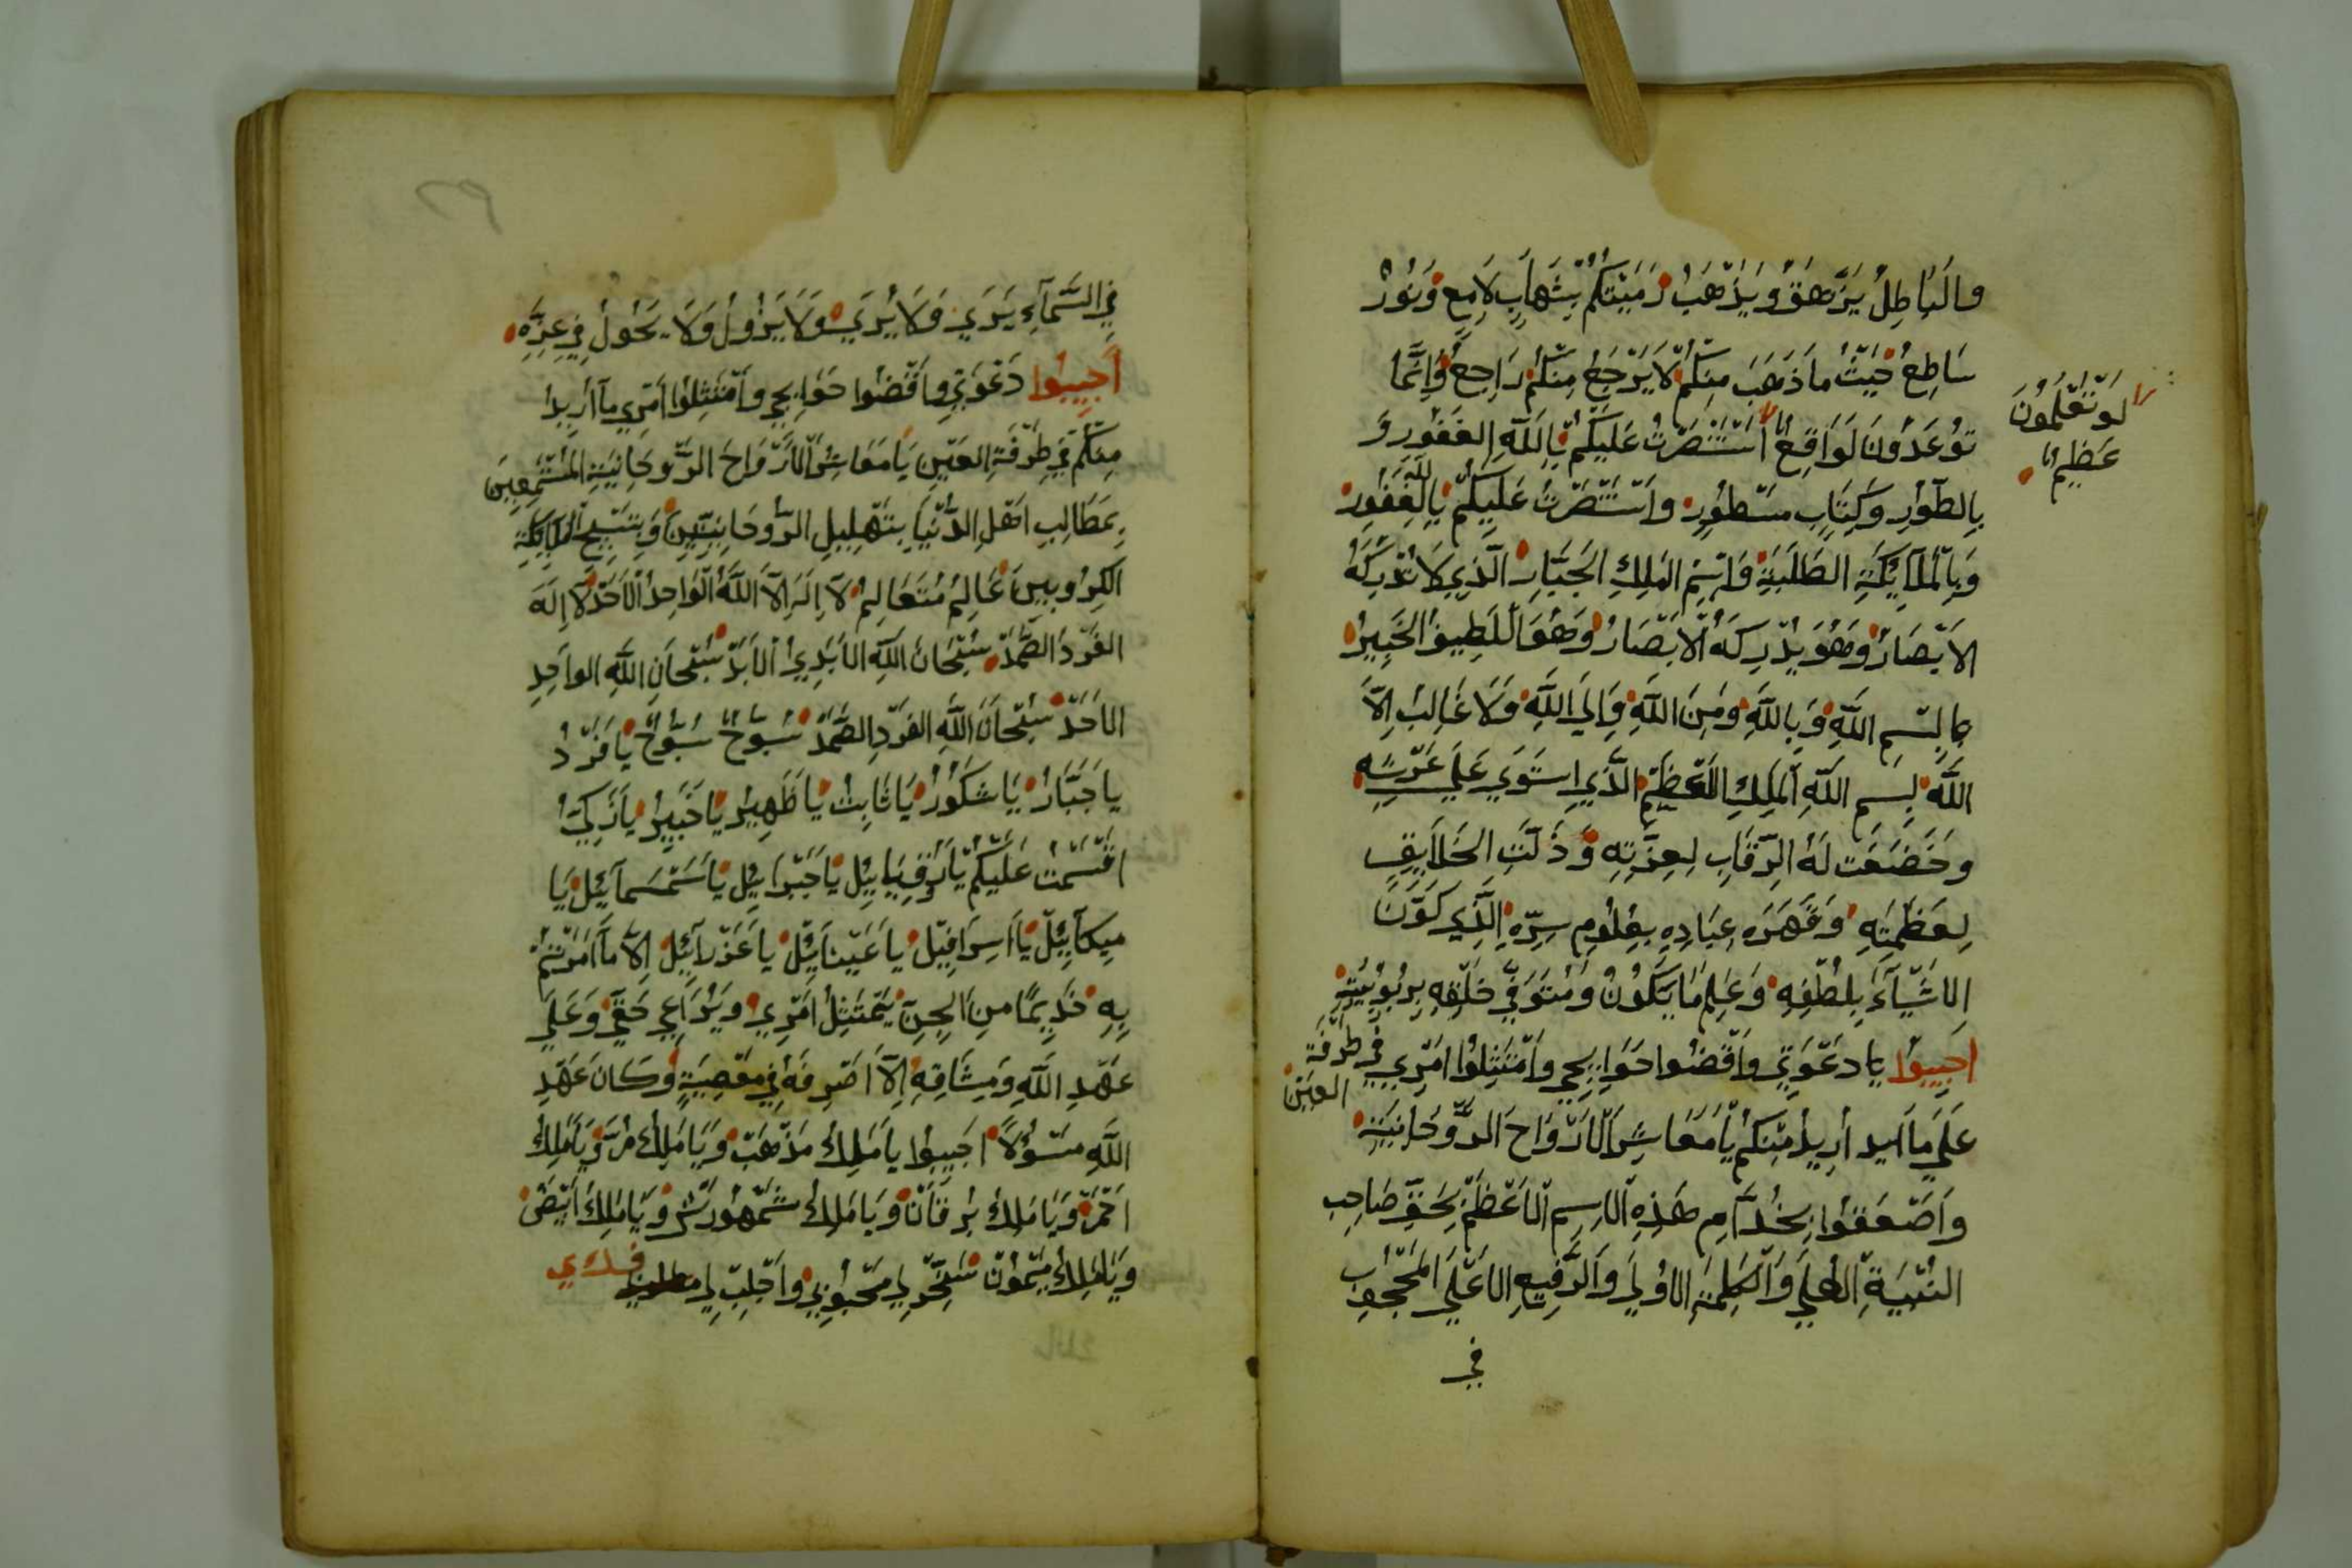 والبَاطِلُ يَزْهَقُ وَيَذْهَبْ رَمَيْتكُمْ بِشَهابٍ لَامِعٍ وَنُورْ
سَاطِعْ حَيْثُ ماَذَهَبَ مِنكُمْ لَا يَرْجَعْ مِنْكُمْ رَاجِعْ وَاِنَّمَا
تُوعَدُونَ لَوَاقِعْ اسْتَنْصَرْتُ عَلَيْكُمْ بِاللَّهِ الغَفُورِ وَ
لَوْ تَعْلَمُونَ
عَظِيمْ
بِالطّوُرِ وَكِتَابٍ مَسْطُورٍ وَاسْتَنْصَرْتُ عَلَيْكُمْ بِاللَّهِ الغَفُورْ
وَبِالْمَلَآئِكَةِ الطَالِبَةِ وَاسْمِ المَلِكِ الجَبَّارِ الَّذِي لَا تُدْرِكَهُ
الاَبْصَارُ وَهُوَ يُدْرِكَهُ الْاَبْصَارُ وَهُوَ اللَّطِيفُ الخَبِيرُ
بِسْمِ اللَّهِ وَبِاللَّهِ وَمِنَ اللَّهِ وَاِلَى اللَّهِ وَلَا غَالِبْ اِلَّا
اللَّهَ بِسِمِ اللَّهِ المَلِكِ العَظِيمْ الَّذِي اِستَوَي عَلَي عَرْشِهِ
وخَضَعَت لَهُ الرِّقَابِ لِعِزَّتِهِ وَذَلَّتِ الخَلَايِقِ
لِعَظَمَتِهِ وَقَهَرَهِ عِبَادِهِ بِعُلُومِ سِرِّهِ الَّذِي كَوَّنَ
الاَشْيَآءَ بِلُطْفِهِ وَعَلِمَ مَا يَكُونُ وَمُتَوَفّي خَلْقِهِ بِرُبُوبِيَّتِهِ
اَجِيبُوا يا دَعْوَتِي وَاقْضُوا حَوَايِجِي وَامْتَثِلُوْا اَمْرِي فِي طَرْفَةِ
العَينْ
عَلَي مَا اريد اُرِيدُ مِنْكُمْ يَا مَعَاشِرَ الْاَرْوَاحَ الرُّوحَانِيَةِ
وَاَصْعَقُوا بِخُدَّامِ هَذِهِ الاِسِمِ الْاَعْظَمْ بِحَقِ صَاحِبِ
العُلَى وَالْكَلِمَةِ الاُوُلَي وَالرَّفِيعِ الاَعْلَي المَحْجُوبِ
في
فِي السَّمَآءِ يَرَي وَلَا يُرَي وَلَا يَزُولْ وَلَا يَحُولْ فِي عِزِّهِ
اَجِيبُوا دَعْوَتِي وَاقْضُوا حَوَايِجِي وَامْتَثِلُوْا اَمْرِي مآ اُرِيدُ
مِنكُمْ فِي طَرْفَةِ العَيْنِ يَا مَعَاشِرَ الْاَرْوَاحَ الرُّوحَانِيَةِ المُسْتَمِعِينَ
بِمَطَالِبِ اَهْلِ الدُّنْيَا بِتَهْلِيلِ الرُّوحَانِيّينَ وَبِتَسْبِيحِ المَلَائِكَةِ
الكِرُوبِينَ عَالِمْ مُتَعَالِمْ لَا اِلَهَ اِلَّا اللَّهُ الْوَاحِدُ الْاَحَدْ لَا اِلَهَ
الفَرْدَ الصَّمَدْ سُبْحَانَ اللَّهِ الاَبَدِيْ الْاَبَدْ سُبْحَانِ اللَّهِ الوَاحِدِ
الاَحَدْ سُبْحَانَ اللَّهِ الفَرْدِ الصَّمَدْ سُبُّوحْ سُبُّوحْ يَا فَرْدُ
يا جَبَّارُ يَا شَكُورُ يَا ثَابِتْ يَا ظَهِيرُ يَا خَبِيرُ يَا زَكِيُّ
اَقْسَمْتْ عَلَيْكُمْ يَا رُوقِيَايِيلْ يَا جَبْرَايِيلْ يَا سَمْسَمآئِيلْ يَا
مِيكآيِيلْ يَا اِسرَافِيلْ يا عَيْنآيِيلْ يَا عَزْرآيِيلْ اِلَّا مَا اَمَرْتُمْ
بِهِ خَدِيمًا مِنَ الجِنِ يَمْتَثِلْ اَمْرِي وَيُرَاعِي حَقِّي وَعَلَي
عَهْدِ اللَّهِ وَمِيثَاقِهِ اِلَّا اَصْرِفَهُ فِي مَعْصِيَةٍ وَكَانَ عَهْدِ
اللَّهِ مَسْؤُلَا اَجِيبُوا يا مَلِكْ مَذْهَبْ وَيَا مَلِكْ مُرَّة وَيَا مَلِكْ
اَحْمَرْ وَيَا مَلِكْ بُرْقَانْ وَيَا مَلِكْ شَمْهُورَشْ وَيَا مَلِكْ اَبْيَضْ
وَيَا مَلِكْ مَيْمُونْ سَخِّرْ لِي مَحْبُوبِي وَاجْلِبْ لِي مطلوبي